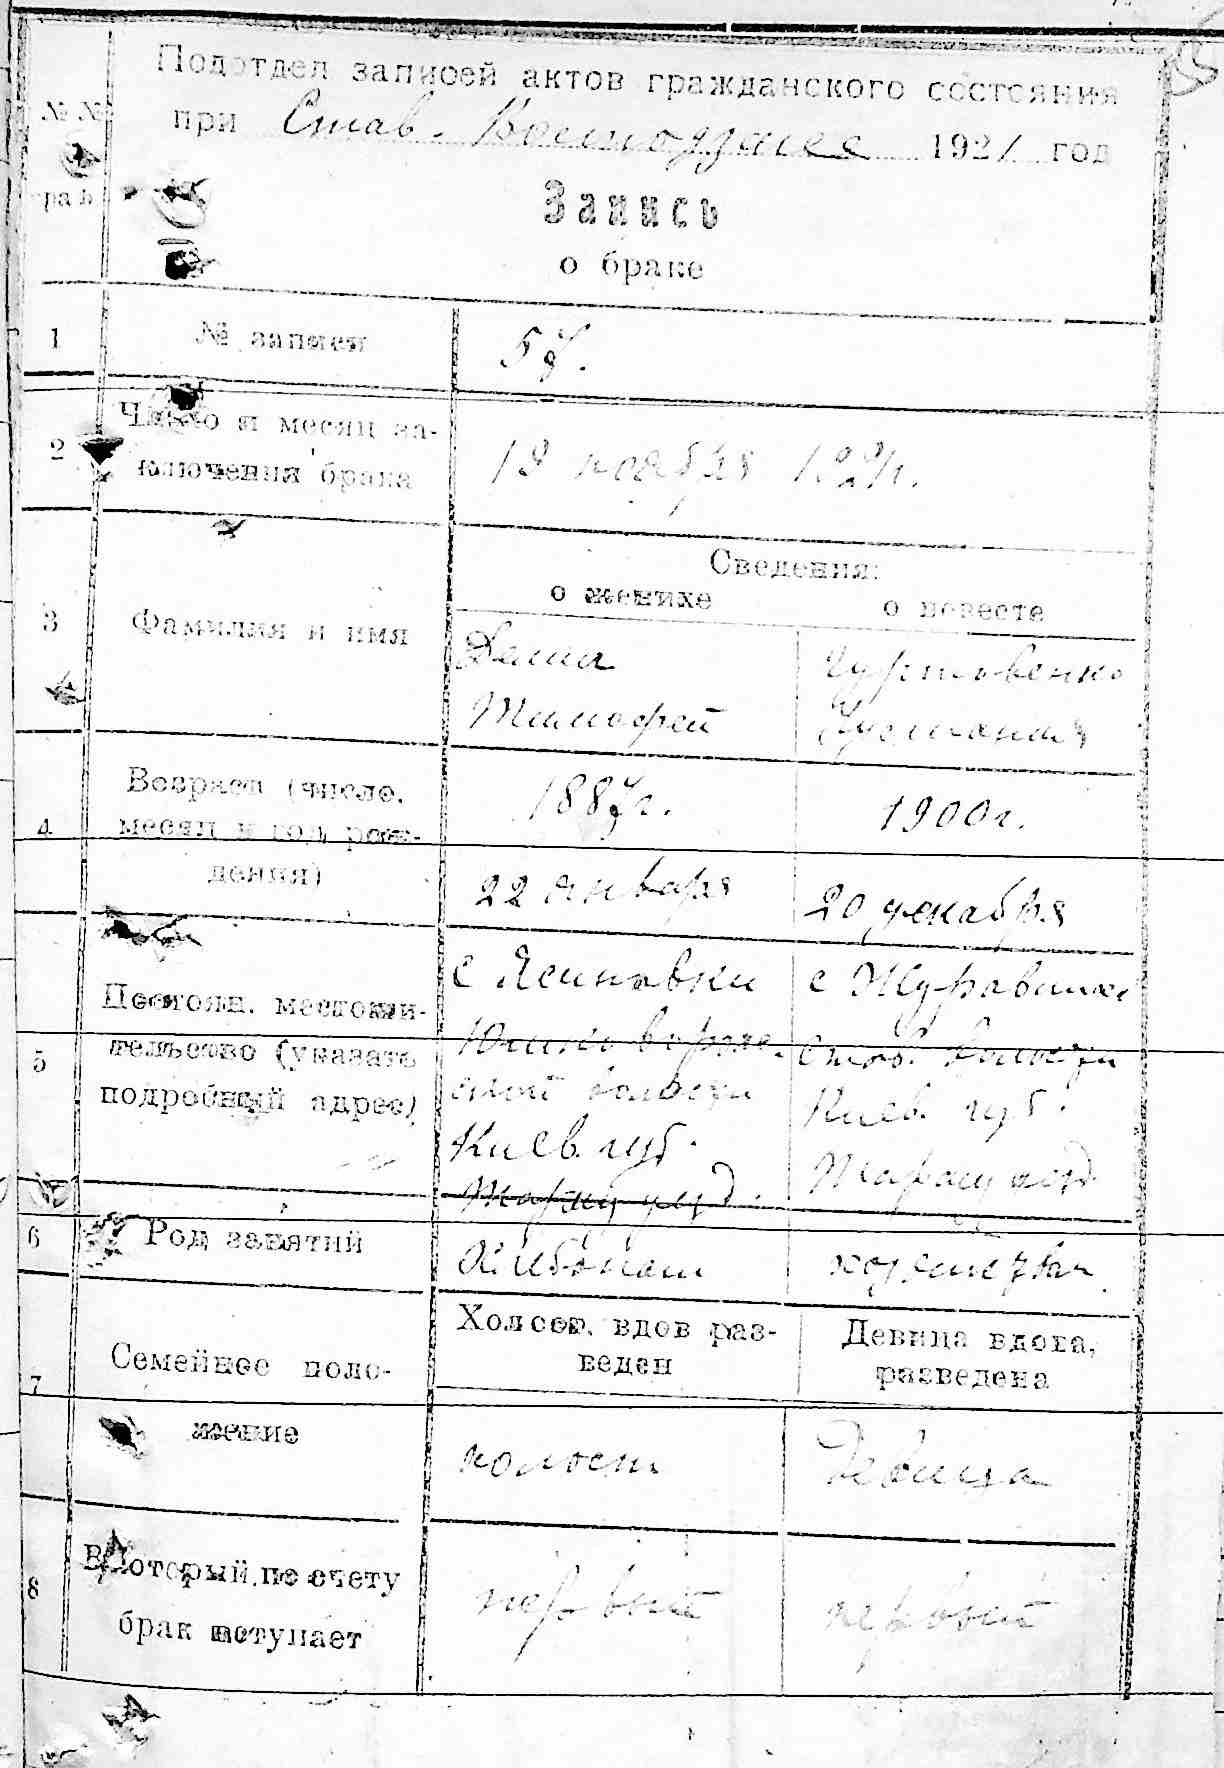 Подотдел записей актов гражданского состояния
при Став. 1921 год
№ №
Запись
о браке
1 № записи 57.
2 Число и месяц за-
ключения брака
19 ноября 1921г.
Сведения:
о женихе о невесте
3 Фамилия и имя
Деша
Тимофей
Чуртовенко
4 Возраст (число,
месяц и год рож-
дения)
1887г. 1900г.
22 января 20 декабря
5 Постоян. местожи-
тельство (указать
подробный адрес)
с Ясиновки
ской волости
Киев. губ.
с Журавлихе
Став. волости
Киев. губ.
Таращ уезд.
6 Род занятий
Хлебопаш
7 Семейное поло-
жение
Холост. вдов раз-
веден
Девица вдова,
разведена
холост Девица
8 В который по счету
брак вступает
первый первый